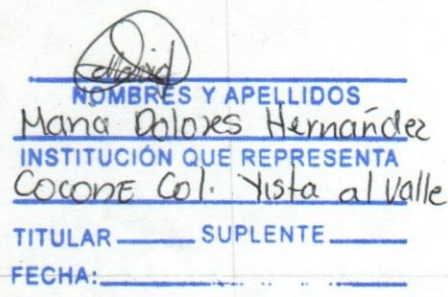 NOMBRES Y APELLIDOS
Maria Dolores Hernández
INSTITUCIÓN QUE REPRESENTA
COCODE Col. Vista al Valle
TITULAR SUPLENTE
FECHA: